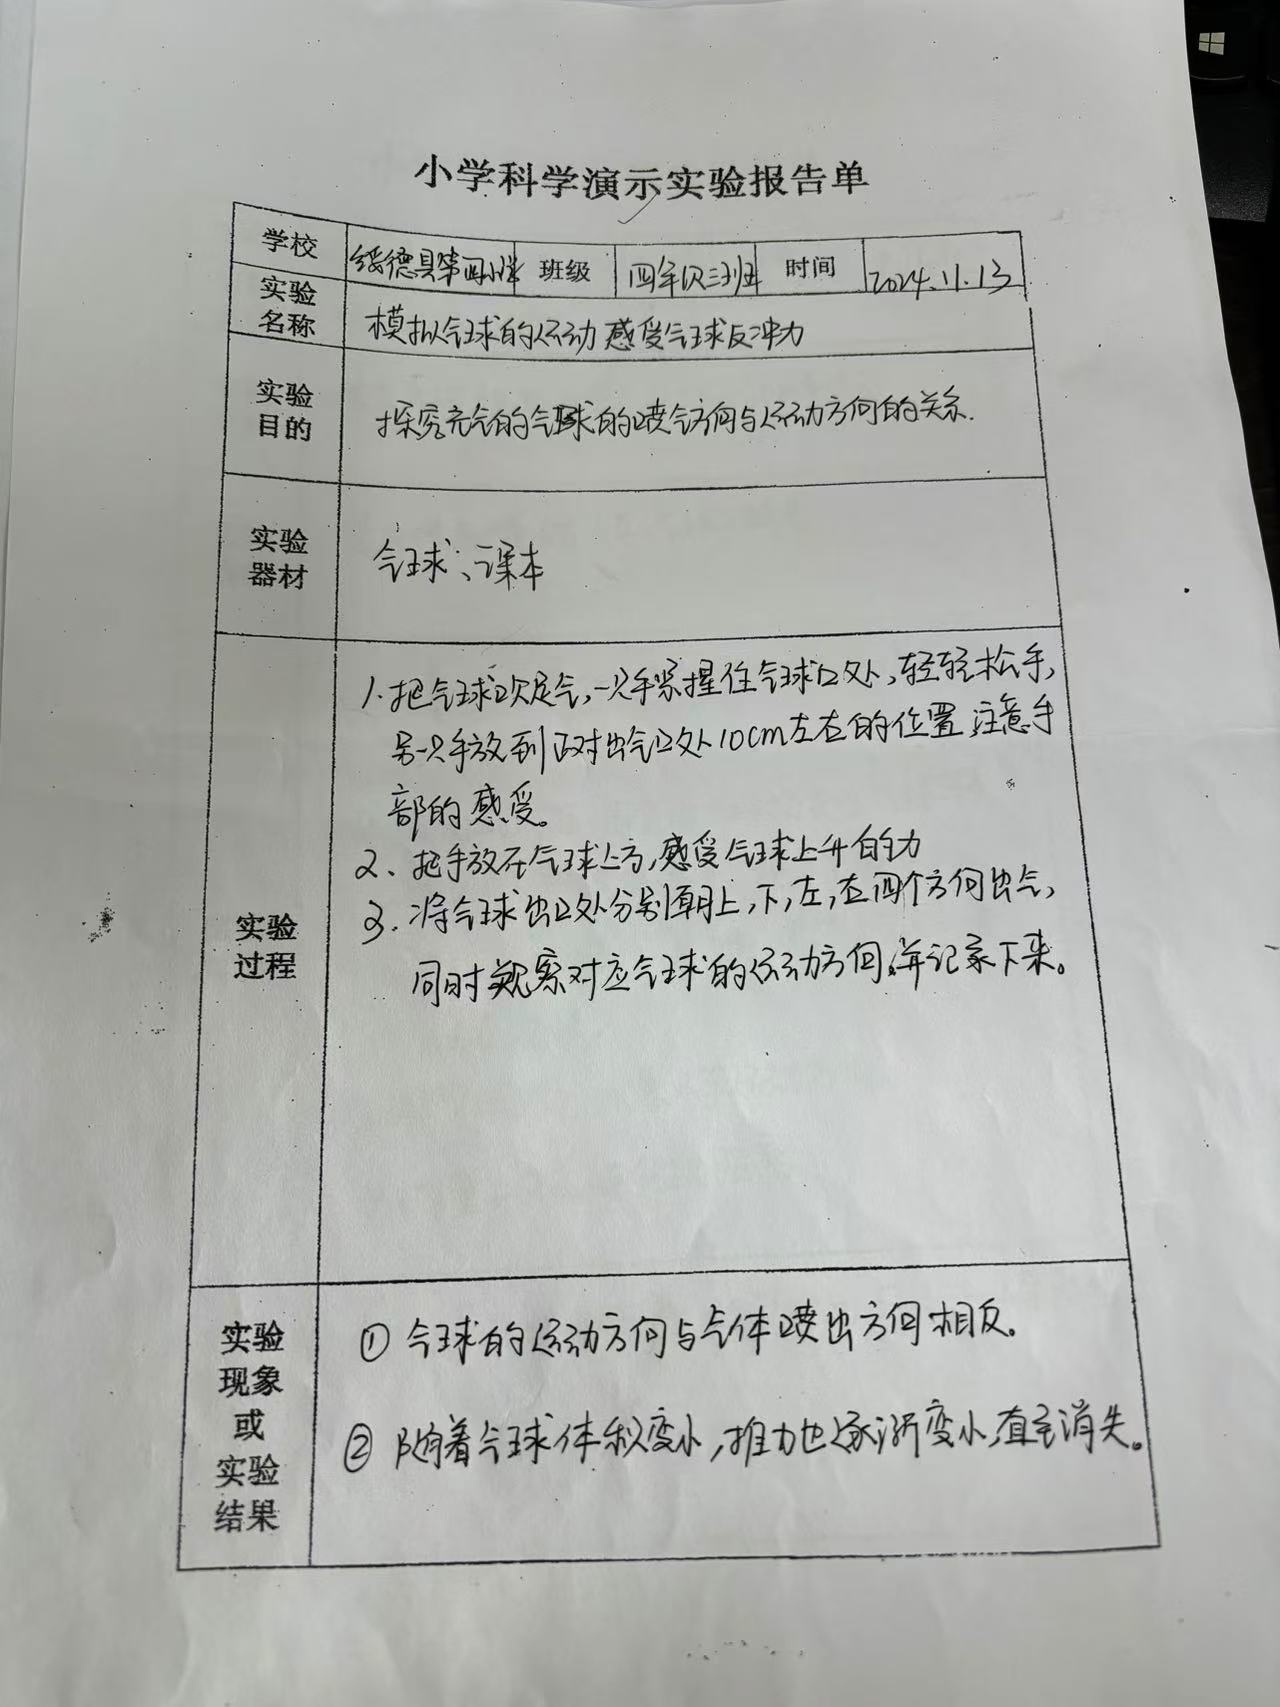 小学科学演示实验报告单
学校 绥德县第四小学 班级 四年级三班 时间 2024.11.13
实验名称 模拟气球的运动 感受气球反冲力
实验目的 探究充气的气球的喷气方向与运动方向的关系.
实验器材 气球、课本
实验过程
1.把气球吹足气,一只手紧握住气球口处,轻轻松手,
另一只手放到正对出气口处10cm左右的位置,注意手
部的感受。
2、把手放在气球上方,感受气球上升的力
3.将气球出口处分别朝上,下,左,右四个方向出气,
同时观察对应气球的运动方向,并记录下来。
实验现象或实验结果
① 气球的运动方向与气体喷出方向相反。
② 随着气球体积变小,推力也逐渐变小,直至消失。